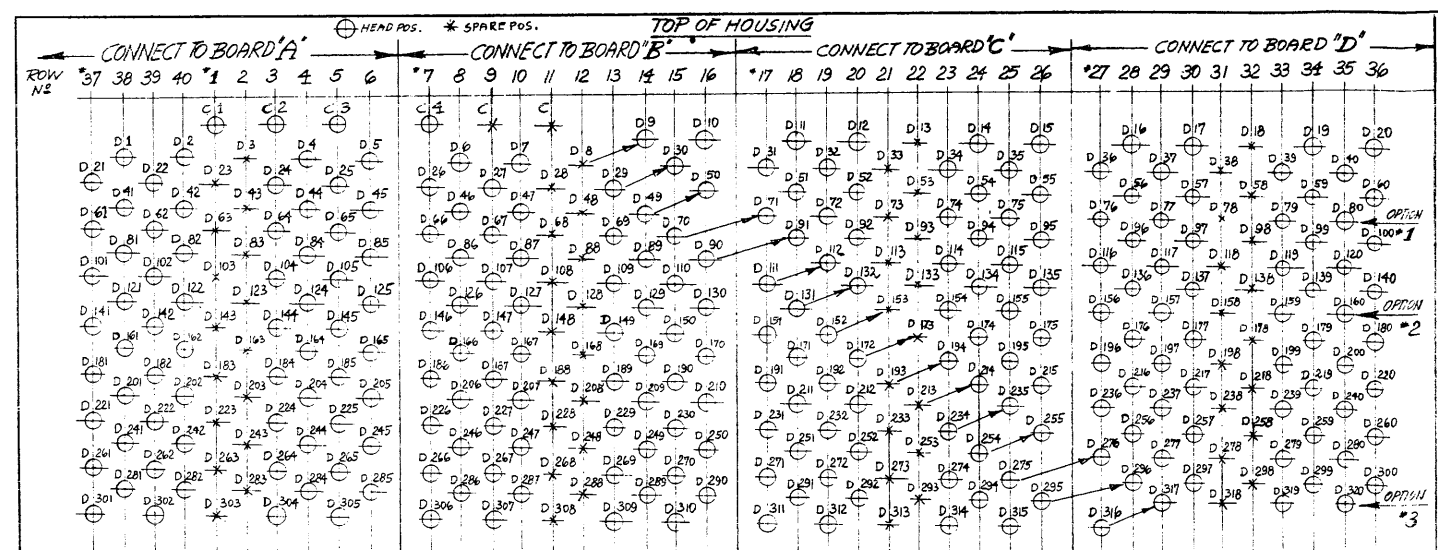 HEAD POS. * SPARE POS.
TOP OF HOUSING
CONNECT TO BOARD "A"
CONNECT TO BOARD "B"
CONNECT TO BOARD "C"
CONNECT TO BOARD "D"
ROW Nº *37 38 39 40 *1 2 3 4 5 6 *7 8 9 10 11 12 13 14 15 16 *17 18 19 20 21 22 23 24 25 26 *27 28 29 30 31 32 33 34 35 36
C 1 C 2 C 3 C 4 C C
D 1 D 2 D 3 D 4 D 5 D 6 D 7 D 8 D 9 D 10 D 11 D 12 D 13 D 14 D 15 D 16 D 17 D 18 D 19 D 20
D 21 D 22 D 23 D 24 D 25 D 26 D 27 D 28 D 29 D 30 D 31 D 32 D 33 D 34 D 35 D 36 D 37 D 38 D 39 D 40
D 41 D 42 D 43 D 44 D 45 D 46 D 47 D 48 D 49 D 50 D 51 D 52 D 53 D 54 D 55 D 56 D 57 D 58 D 59 D 60
D 61 D 62 D 63 D 64 D 65 D 66 D 67 D 68 D 69 D 70 D 71 D 72 D 73 D 74 D 75 D 76 D 77 D 78 D 79 D 80 OPTION #1
D 81 D 82 D 83 D 84 D 85 D 86 D 87 D 88 D 89 D 90 D 91 D 92 D 93 D 94 D 95 D 96 D 97 D 98 D 99 D 100
D 101 D 102 D 103 D 104 D 105 D 106 D 107 D 108 D 109 D 110 D 111 D 112 D 113 D 114 D 115 D 116 D 117 D 118 D 119 D 120
D 121 D 122 D 123 D 124 D 125 D 126 D 127 D 128 D 129 D 130 D 131 D 132 D 133 D 134 D 135 D 136 D 137 D 138 D 139 D 140
D 141 D 142 D 143 D 144 D 145 D 146 D 147 D 148 D 149 D 150 D 151 D 152 D 153 D 154 D 155 D 156 D 157 D 158 D 159 D 160 OPTION #2
D 161 D 162 D 163 D 164 D 165 D 166 D 167 D 168 D 169 D 170 D 171 D 172 D 173 D 174 D 175 D 176 D 177 D 178 D 179 D 180
D 181 D 182 D 183 D 184 D 185 D 186 D 187 D 188 D 189 D 190 D 191 D 192 D 193 D 194 D 195 D 196 D 197 D 198 D 199 D 200
D 201 D 202 D 203 D 204 D 205 D 206 D 207 D 208 D 209 D 210 D 211 D 212 D 213 D 214 D 215 D 216 D 217 D 218 D 219 D 220
D 221 D 222 D 223 D 224 D 225 D 226 D 227 D 228 D 229 D 230 D 231 D 232 D 233 D 234 D 235 D 236 D 237 D 238 D 239 D 240
D 241 D 242 D 243 D 244 D 245 D 246 D 247 D 248 D 249 D 250 D 251 D 252 D 253 D 254 D 255 D 256 D 257 D 258 D 259 D 260
D 261 D 262 D 263 D 264 D 265 D 266 D 267 D 268 D 269 D 270 D 271 D 272 D 273 D 274 D 275 D 276 D 277 D 278 D 279 D 280
D 281 D 282 D 283 D 284 D 285 D 286 D 287 D 288 D 289 D 290 D 291 D 292 D 293 D 294 D 295 D 296 D 297 D 298 D 299 D 300
D 301 D 302 D 303 D 304 D 305 D 306 D 307 D 308 D 309 D 310 D 311 D 312 D 313 D 314 D 315 D 316 D 317 D 318 D 319 D 320 OPTION #3